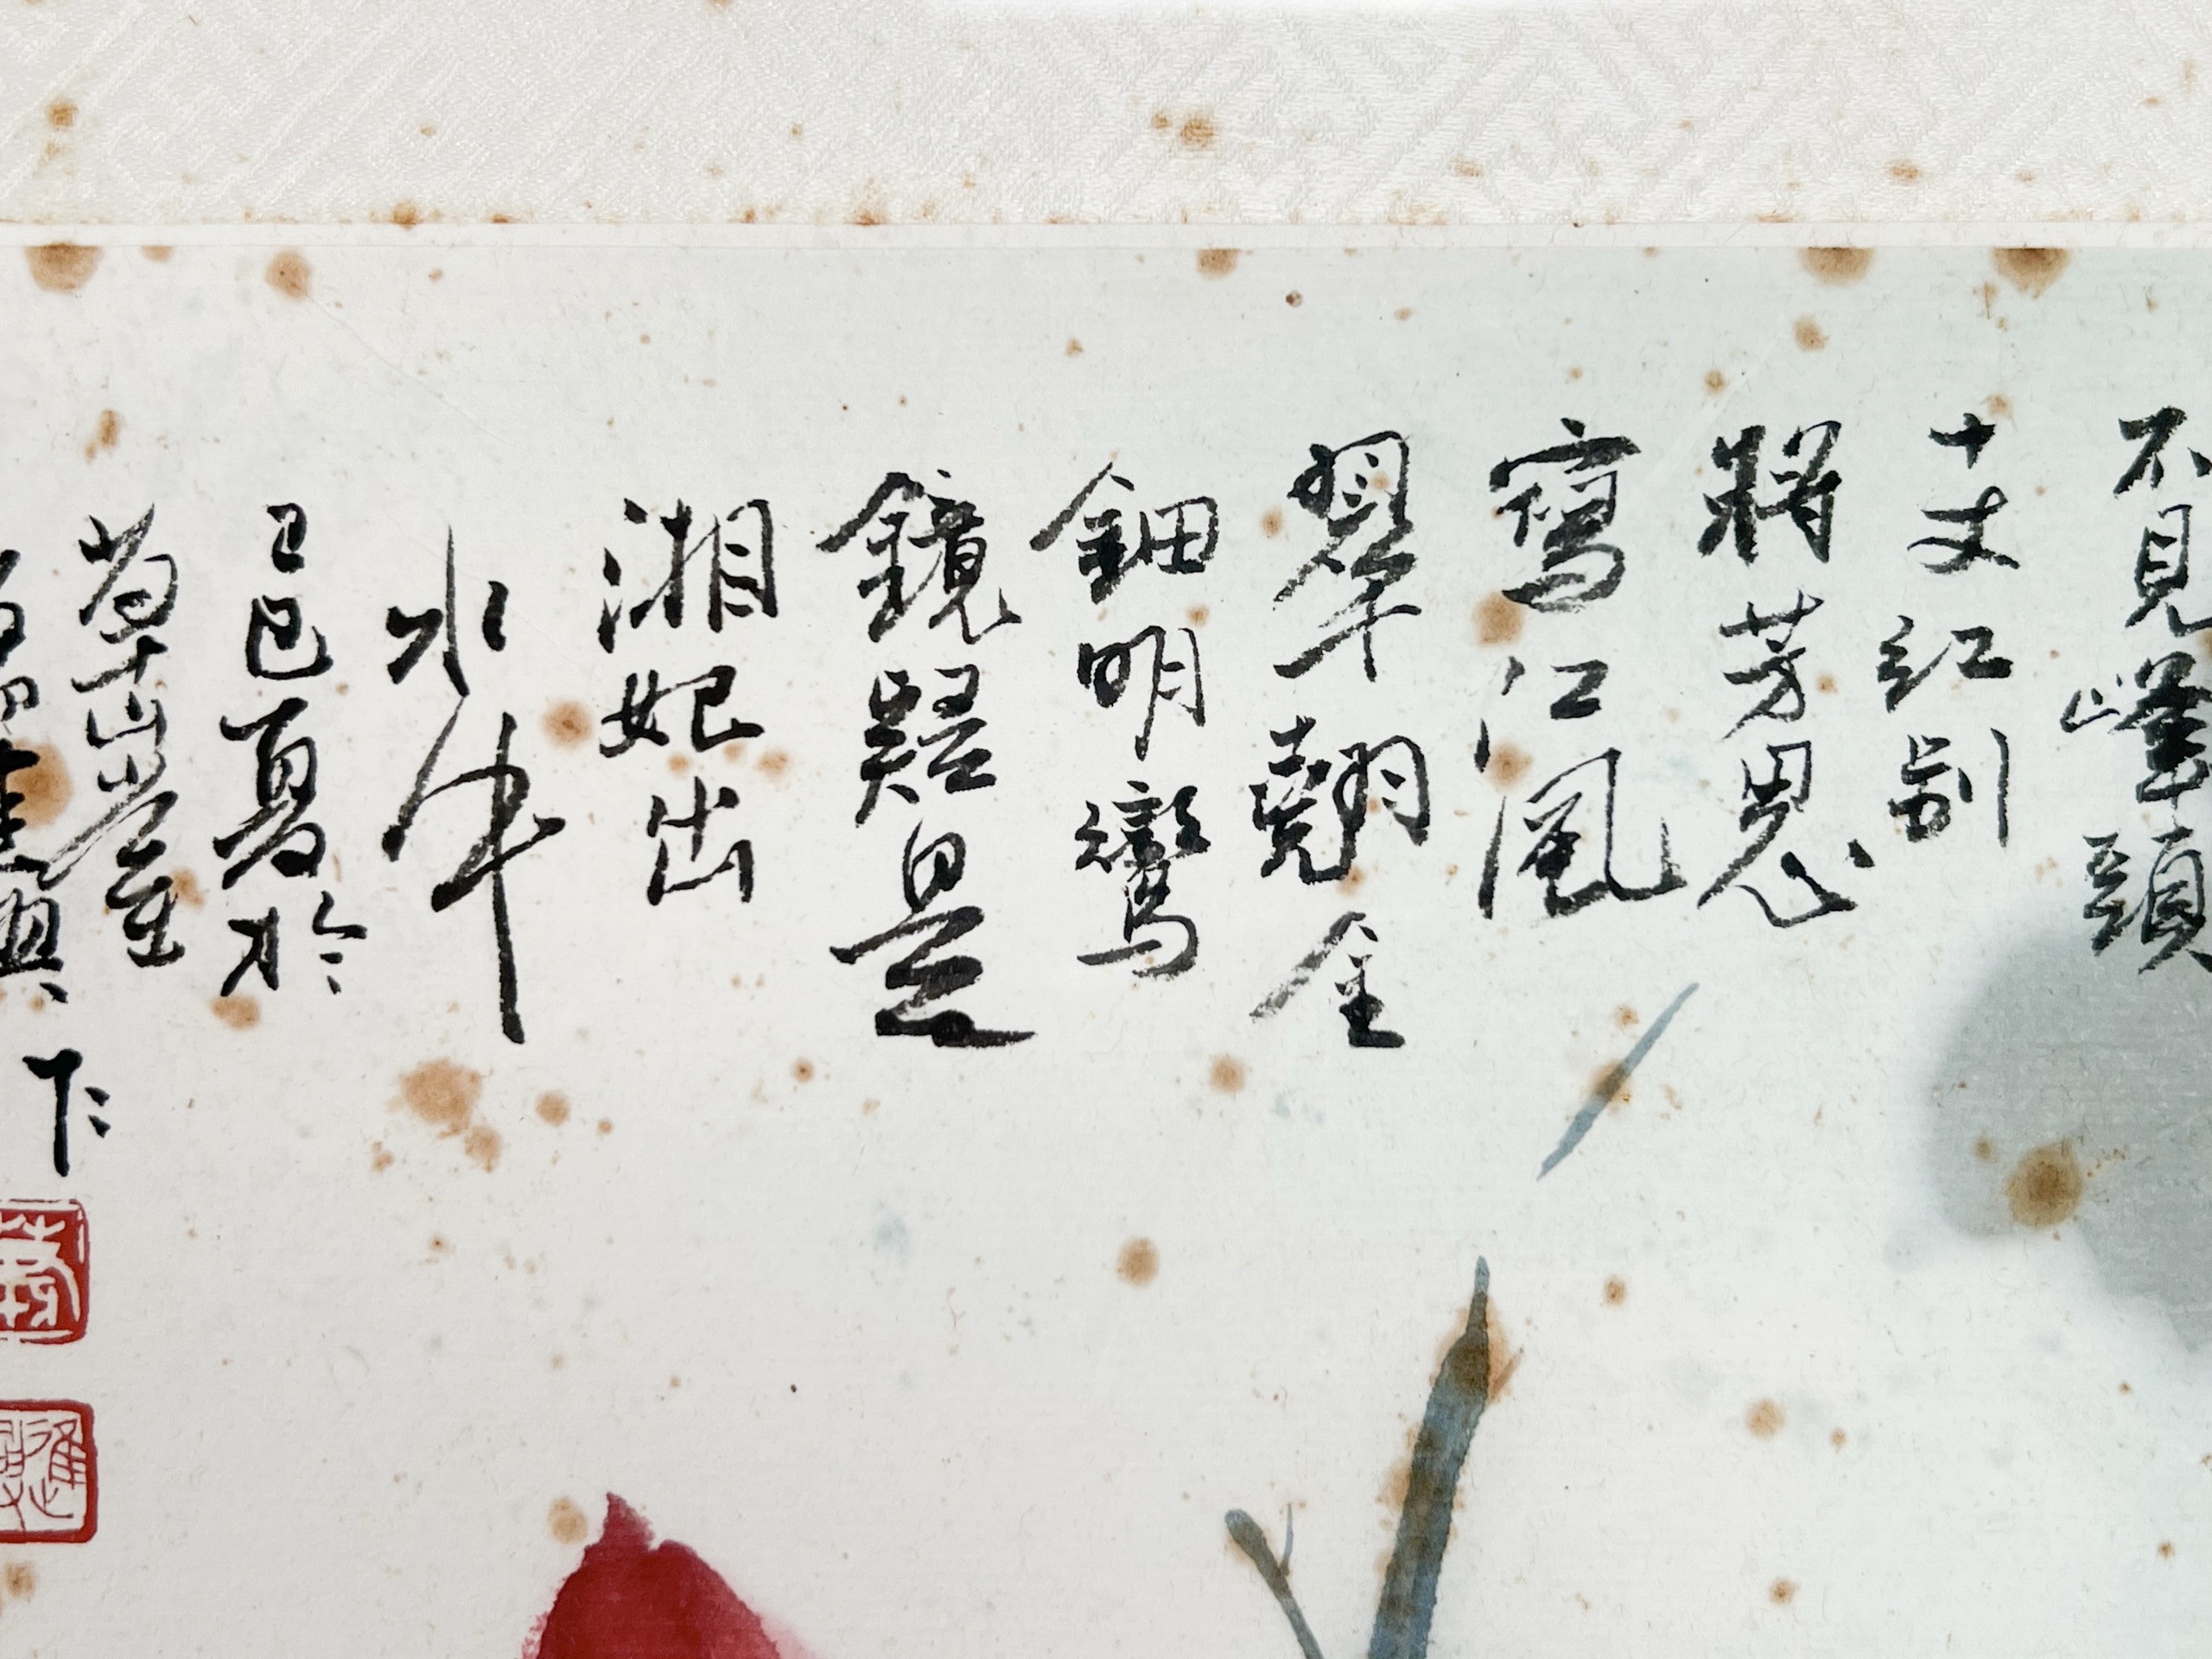 不見峰頭
十丈紅剧
將芳思
寫江風
翠翹金
鈿明鸞
鏡疑是
湘妃出
水中
己巳夏於
草山堂
作